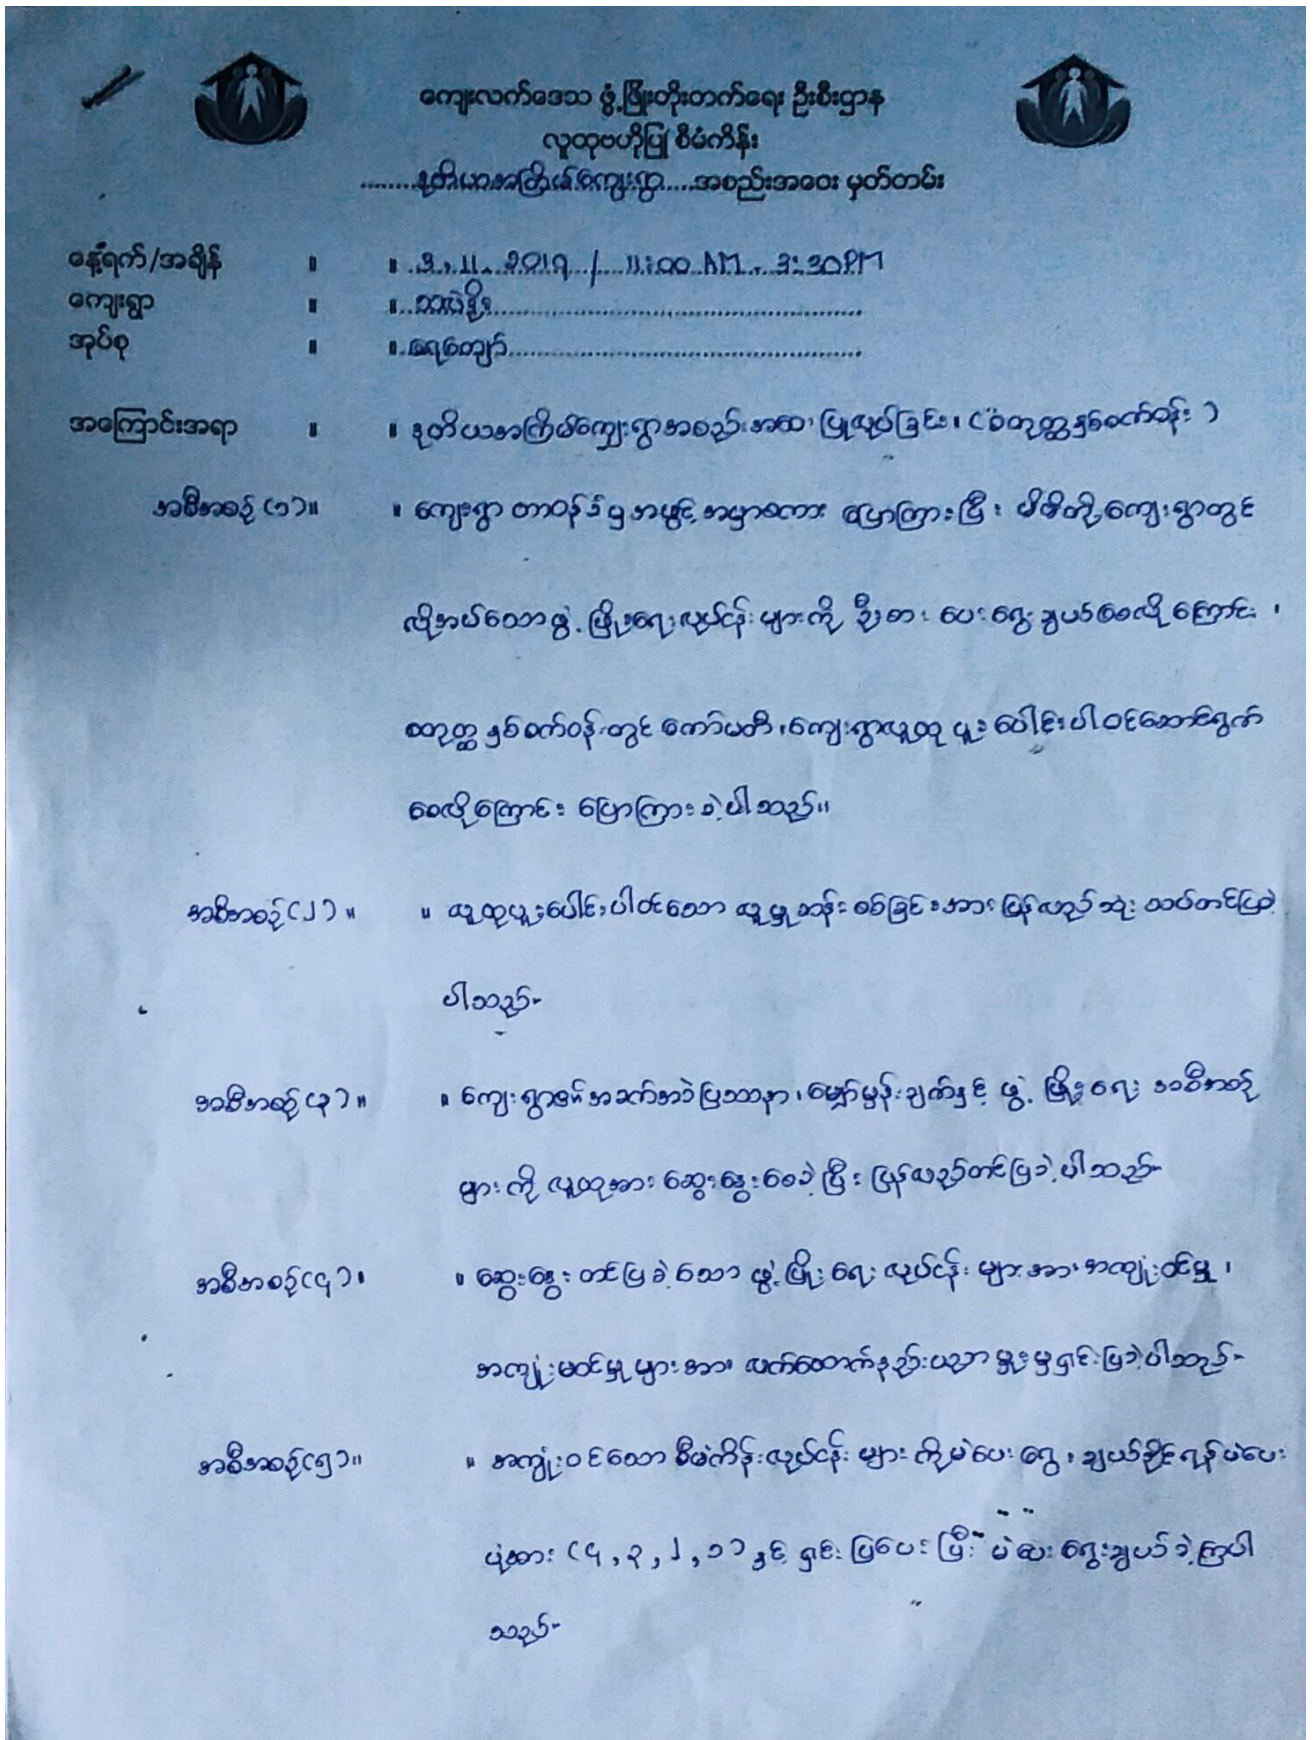 ကျေးလက်ဒေသ ဖွံ့ဖြိုးတိုးတက်ရေး ဦးစီးဌာန
လူထုဗဟိုပြု စီမံကိန်း
........ဒုတိယအကြိမ်ကျေးရွာ....အစည်းအဝေး မှတ်တမ်း
နေ့ရက်/အချိန် ။ ။ 3.11.2019 / 11:00 AM - 3:30PM
ကျေးရွာ ။ ။
အုပ်စု ။ ။ ရေကျော်
အကြောင်းအရာ ။ ။ ဒုတိယအကြိမ်ကျေးရွာအစည်းအဝေး ပြုလုပ်ခြင်း၊ (စတုတ္ထနှစ်စက်ဝန်း)
အစီအစဉ်(၁)။ ။ ကျေးရွာ တာဝန်ခံမှ အဖွင့် အမှာစကား ပြောကြားပြီး မိမိတို့ကျေးရွာတွင်
လိုအပ်သောဖွံ့ဖြိုးရေးလုပ်ငန်းများကို ဦးစားပေးရွေးချယ်စေလိုကြောင်း၊
စတုတ္ထနှစ်စက်ဝန်းတွင် ကော်မတီ၊ကျေးရွာလူထု ပူးပေါင်းပါဝင်ဆောင်ရွက်
စေလိုကြောင်း ပြောကြားခဲ့ပါသည်။
အစီအစဉ်(၂)။ ။ လူထုပူးပေါင်းပါဝင်သော လူမှုဆန်းစစ်ခြင်းအား ပြန်လည်သုံးသပ်တင်ပြခဲ့
ပါသည်-
အစီအစဉ်(၃)။ ။ ကျေးရွာ၏ အခက်အခဲပြဿနာ၊မျှော်မှန်းချက်နှင့် ဖွံ့ဖြိုးရေး အစီအစဉ်
များကို လူထုအား ဆွေးနွေးစေခဲ့ပြီး ပြန်လည်တင်ပြခဲ့ပါသည်-
အစီအစဉ်(၄)။ ။ ဆွေးနွေးတင်ပြခဲ့သော ဖွံ့ဖြိုးရေးလုပ်ငန်းများအား အကျုံးဝင်မှု၊
အကျုံးမဝင်မှုများအား လက်ထောက်နည်းပညာမှူးမှ ရှင်းပြခဲ့ပါသည်-
အစီအစဉ်(၅)။ ။ အကျုံးဝင်သော စီမံကိန်းလုပ်ငန်းများကိုမဲပေးရွေးချယ်နိုင်ရန်မဲပေး
ပုံအား (၄,၃,၂,၁) နှင့် ရှင်းပြပေးပြီး မဲပေးရွေးချယ်ခဲ့ကြပါ
သည်-